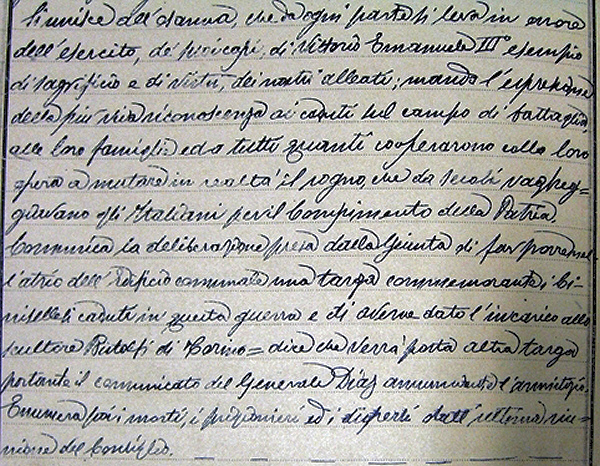 si unisce all'osanna, che da ogni parte si leva in onore
dell'esercito, de' suoi capi, di Vittorio Emanuele III° esempio
di sagrificio e di virtù, dei nostri alleati; manda l'espressione
della più viva riconoscenza ai caduti sul campo di battaglia
alle loro famiglie ed a tutti quanti cooperarono colla loro
opera a mutare in realtà il sogno, che da secoli vagheg=
giavano gli Italiani per il Compimento della Patria.
Comunica la deliberazione presa dalla Giunta di far porre nel=
l'atrio dell'Edificio comunale una targa commemorante i Ci=
caduti in questa guerra e di averne dato l'incarico allo
scultore di Torino= dice che verrà posta altra targa
portante il comunicato del Generale Diaz annunziante l'armistizio.
Enumera poi i morti, i prigionieri ed i dispersi dall'ultima riu=
nione del Consiglio.